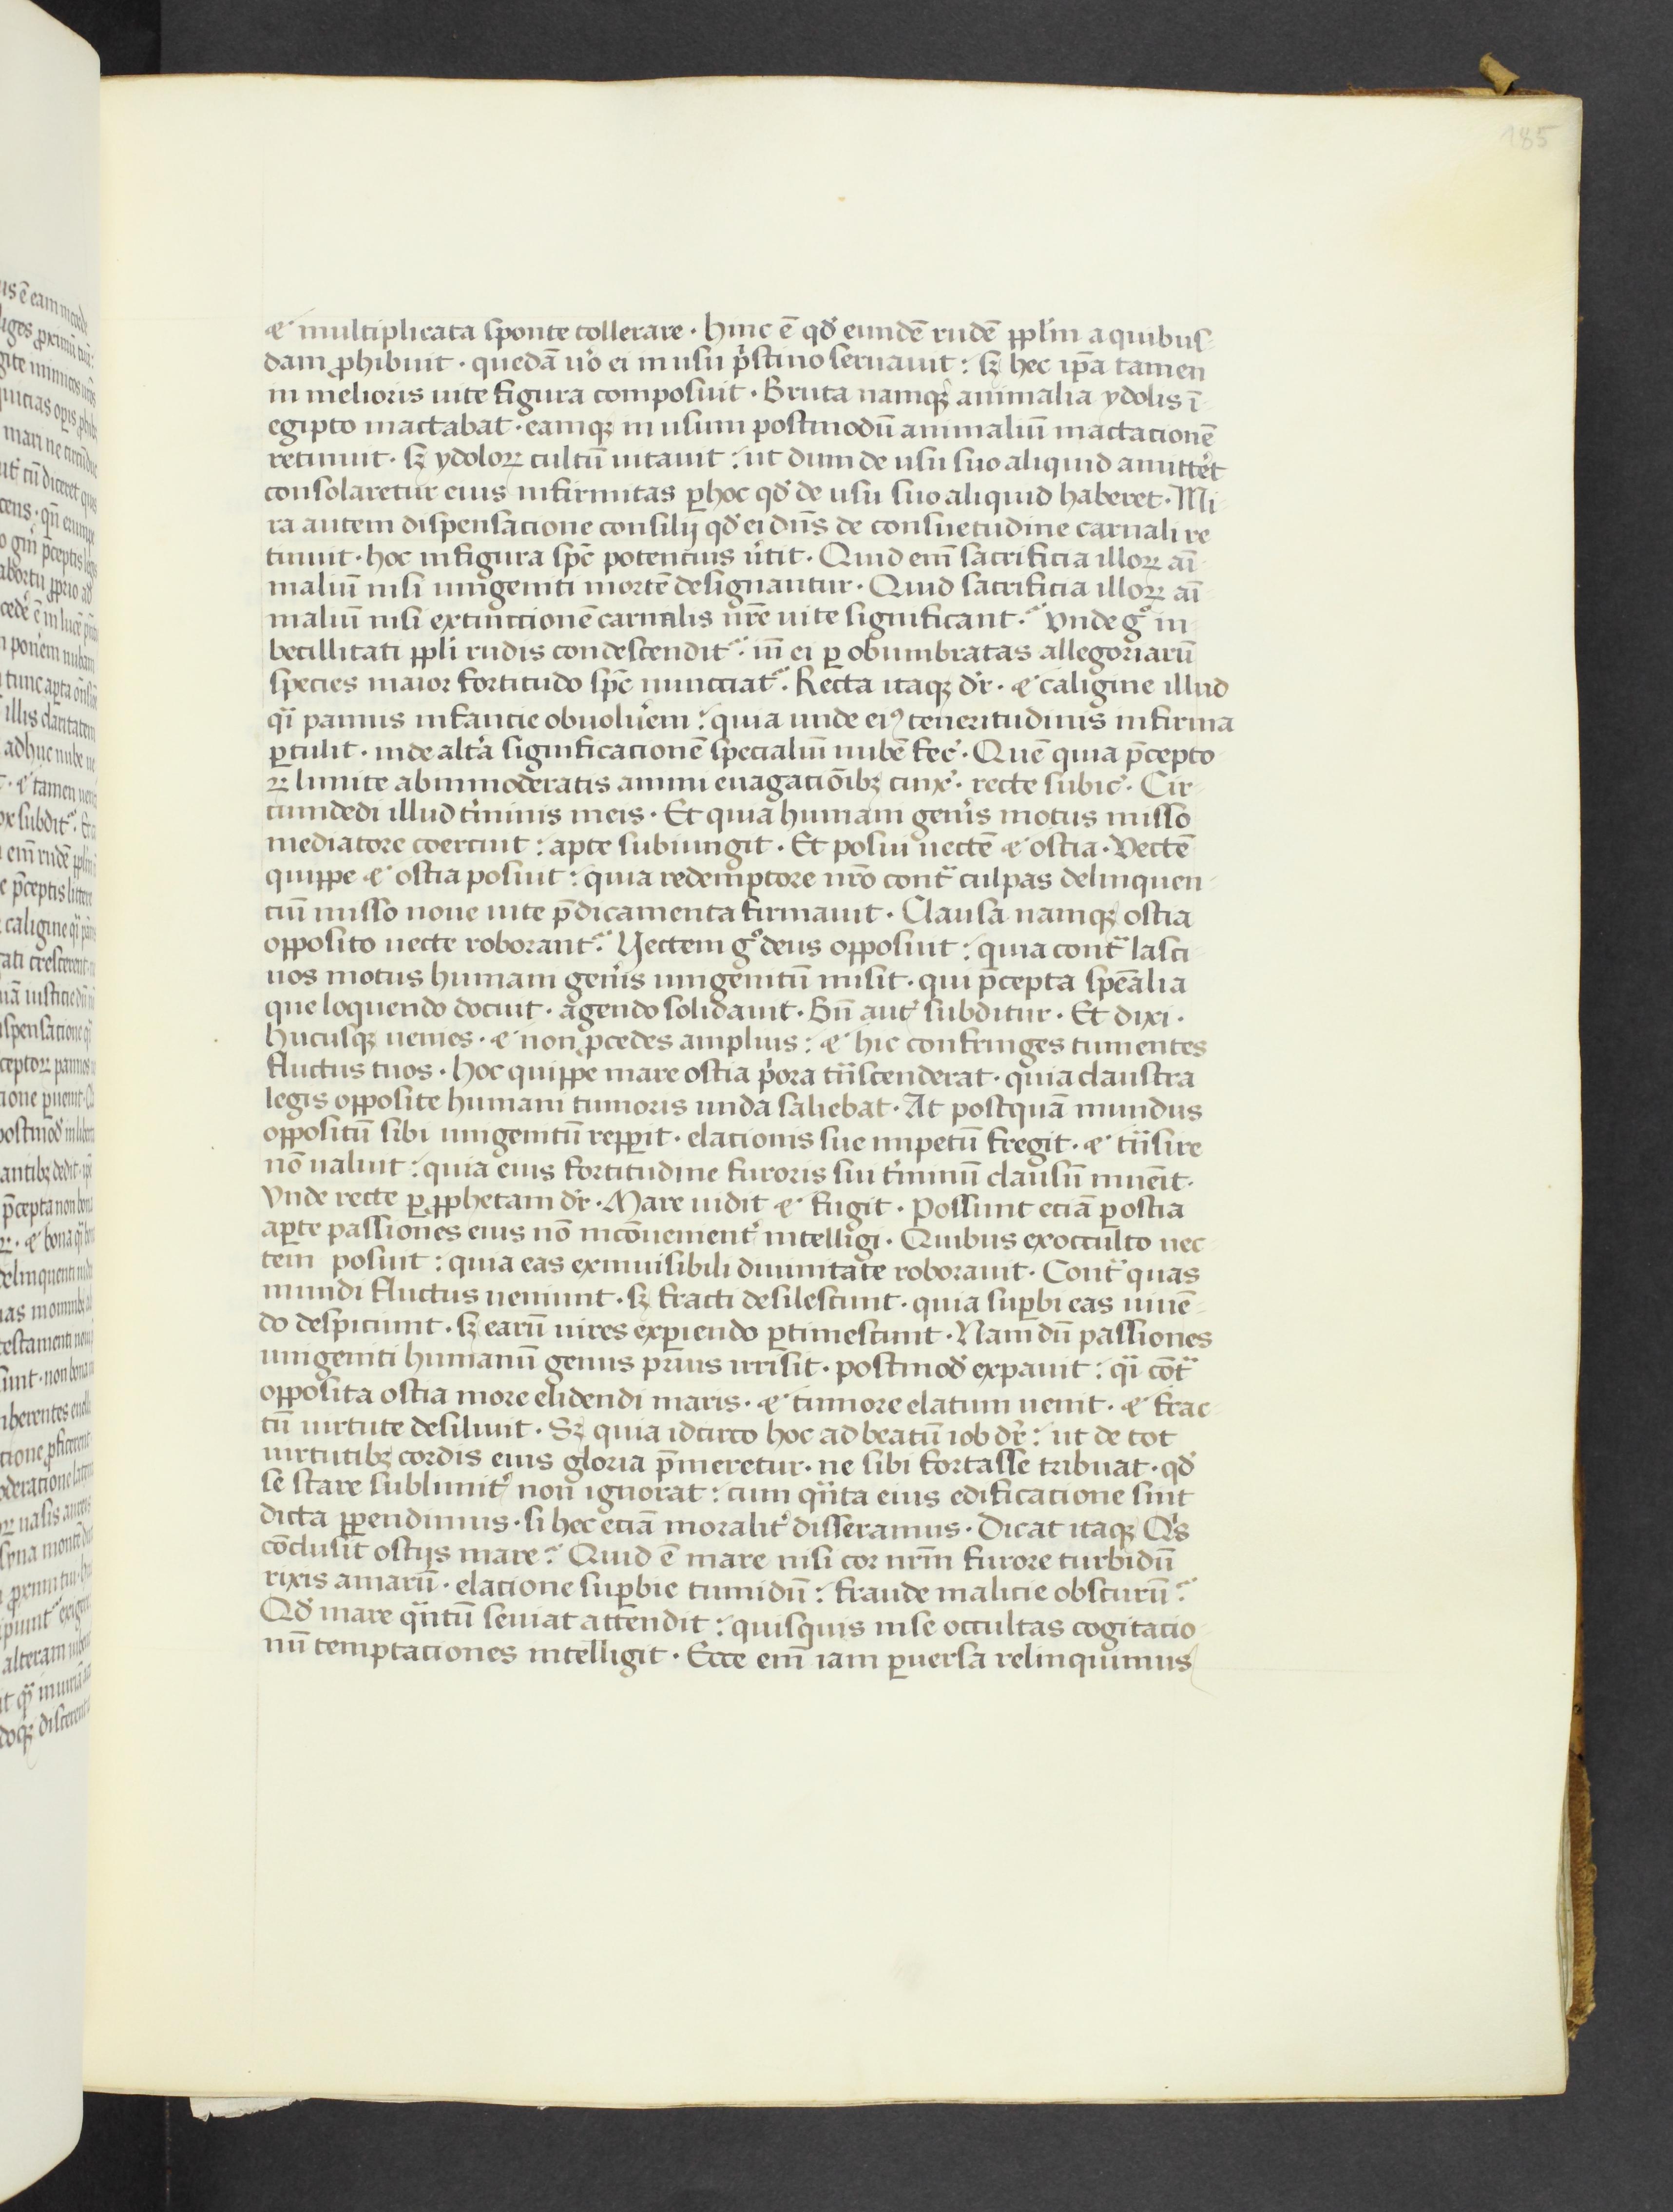 185
et multiplicata sponte tollerare · hinc ē qd̛ eundē rudē ꝓpl̛m a quibus-
dam ꝓhibuit · quedā u̾o ei in usu p̛stino seruauit : sꝫ hec ip̄a tamen
in melioris uite figura composuit · Bruta namqꝫ animalia ydolis ī-
egipto mactabat · eamqꝫ in usum postmodū animaliū mactacionē
retinuit · sꝫ ydoloꝝ cultū uitauit : ut dum de usu suo aliquid amitte̾t
consolaretur eius infirmitas ꝑ hoc qd̛ de usu suo aliquid haberet · Mi-
ra autem dispensacione consilij qd̛ ei dn̄s de consuetudine carnali re-
tinuit · hoc in figura spc̄ potencius u̾tit · Quid em̄ sacrificia illoꝝ aī-
maliū nisi unigeniti mortē designantur · Quid sacrificia illoꝝ aī-
maliū nisi extinccionē carnalis nr̄e uite significant · Vnde gͦ in-
becillitati ꝓpl̛i rudis condescendit᷑ · in̄ ei ꝑ obumbratas allegoriarū
species maior fortitudo spc̄ nunciat᷑ · Recta itaqꝫ dr̄ · et caligine illud
qͣi pannis infancie obuolu̾em : quia unde eiꝰ teneritudinis infirma
ꝑtulit · inde alt̾a significacionē specialiū nubē fec̾ · Quē quia p̄cepto-
ꝝ limite ab inmoderatis animi euagaciōibꝫ cinx̾ · recte subic̾ · Cir-
cumdedi illud t̾minis meis · Et quia humani gen̾is motus misso
mediatore coercuit : apte subiungit · Et posui uectē et ostia · Vectē
quippe et ostia posuit : quia redemptore nr̄o contͣ culpas delinquen-
ciū misso noue uite p̄dicamenta firmauit · Clausa namqꝫ ostia
opposito uecte roborant᷑ · Vectem gͦ deus opposuit : quia contͣ lasci-
uos motus humani gen̾is unigenitū misit · qui p̄cepta spēalia
que loquendo docuit · agendo solidauit · Bn̄ aut̾ subditur · Et dixi ·
hucusqꝫ uenies · et non ꝓcedes amplius : et hic confringes tumentes
fluctus tuos · hoc quippe mare ostia p̛ora tͣscenderat · quia claustra
legis opposite humani tumoris unda saliebat · At postquā mundus
oppositū sibi unigenitū repꝑit · elacionis sue impetū fregit · et tͣsire
nō ualuit : quia eius fortitudine furoris sui t̾minū clausū inuēit ·
Vnde recte ꝑ ꝓphetam dr̄ · Mare uidit et fugit · Possunt eciā ꝑ ostia
aꝑte passiones eius nō incōuenient̾ intelligi · Quibus ex occulto uec-
tem posuit : quia eas ex inuisibili diuinitate roborauit · Contͣ quas
mundi fluctus ueniunt · sꝫ fracti desilescunt · quia suꝑbi eas uiuē-
do despiciunt · sꝫ earū uires exꝑiendo ꝑtimescunt · Nam dū passiones
unigeniti humanū genus prius irrisit · postmod̛ expauit : qͣi cōtͣ
opposita ostia more elidendi maris · et tumore elatum uenit · et frac-
tū uirtute desiluit · Sꝫ quia idcirco hoc ad beatū iob dr̄ : ut de tot
uirtutibꝫ cordis eius gloria p̄meretur · ne sibi fortasse tribuat · qd̛
se stare sublimit̾ non ignorat : cum qͣnta eius edificacione sint
dicta ꝑpendimus · si hec eciā moralit̾ disseramus · Dicat itaqꝫ Q̛s
cōclusit ostijs mare · Quid ē mare nisi cor nr̄m furore turbidū
rixis amarū · elacione suꝑbie tumidū : fraude malicie obscurū ·
Qd̛ mare qͣntū seuiat attendit : quisquis in se occultas cogitacio-
nū temptaciones intelligit · Ecce em̄ iam ꝑuersa relinquimus